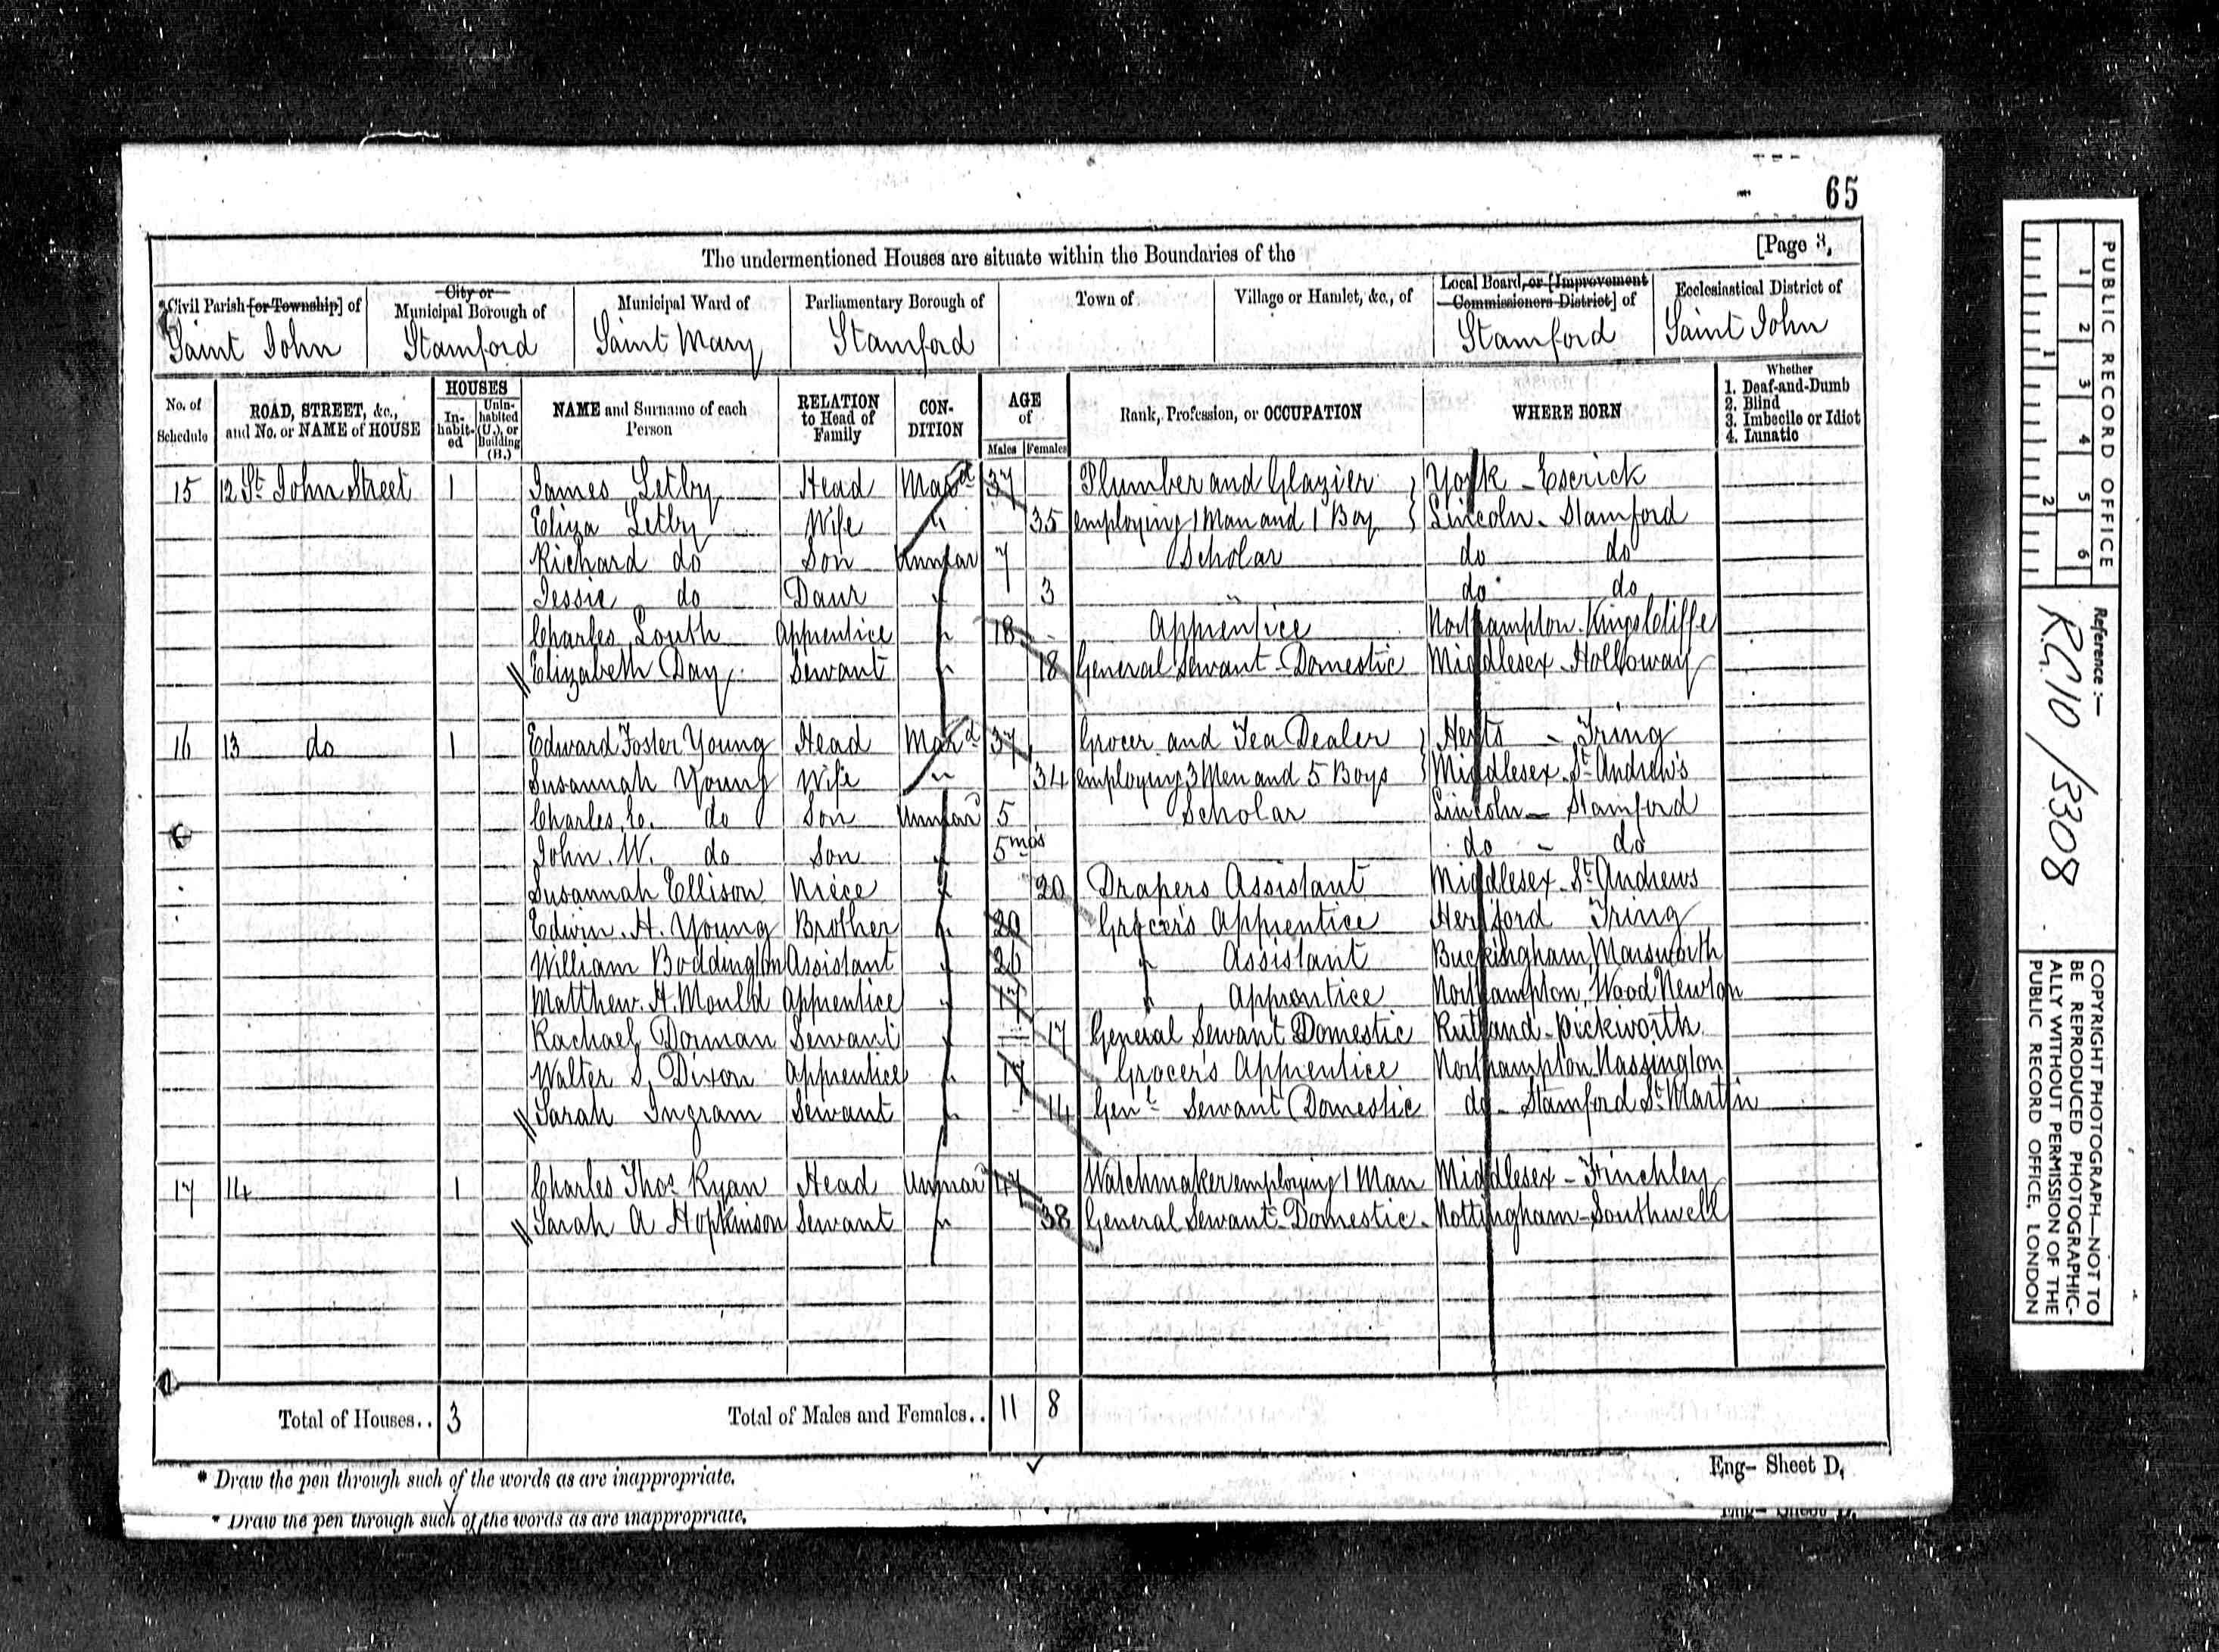 65
The undermentioned Houses are situate within the Boundaries of the [Page 3,
*Civil Parish [or Township] of
Saint John
City or Municipal Borough of
Stamford
Municipal Ward of
Saint Mary
Parliamentary Borough of
Stamford
Town of
Village or Hamlet, &c., of
Local Board, or [Improvement Commissioners District] of
Stamford
Ecclesiastical District of
Saint John
No. of Schedule
ROAD, STREET, &c., and No. or NAME of HOUSE
HOUSES
In-habit-ed
Unin-habited (U.), or Building (B.)
NAME and Surname of each Person
RELATION to Head of Family
CON-DITION
AGE of
Males Females
Rank, Profession, or OCCUPATION
WHERE BORN
Whether
1. Deaf-and-Dumb
2. Blind
3. Imbecile or Idiot
4. Lunatic
15 12 St John Street 1 James Letby Head Mard 37 Plumber and Glazier York - Escrick
Eliza Letby Wife " 35 employing 1 Man and 1 Boy Lincoln - Stamford
Richard do Son Unmar 7 Scholar do do
Jessie do Daur " 3 " do do
Charles South Apprentice " 18 Apprentice Northampton. Kingscliffe
Elizabeth Day Servant " 18 General Servant - Domestic Middlesex - Holloway
16 13 do 1 Edward Foster Young Head Mard 37 Grocer and Tea Dealer Herts - Tring
Susannah Young Wife " 34 employing 3 Men and 5 Boys Middlesex. St Andrew's
Charles C. do Son Unmar 5 Scholar Lincoln - Stamford
John. W. do Son " 5 mos do - do
Susannah Ellison Niece " 20 Drapers Assistant Middlesex. St Andrews
Edwin. H. Young Brother " 20 Grocer's Apprentice Hertford Tring
William Boddington Assistant " 20 " Assistant Buckingham, Marsworth
Matthew. H. Mould Apprentice " 17 " Apprentice Northampton, Wood Newton
Rachael Dorman Servant " 17 General Servant Domestic Rutland - Pickworth
Walter S. Dixon Apprentice " Grocer's Apprentice Northampton Nassington
Sarah Ingram Servant " 14 Genl Servant (Domestic do - Stamford St Martin
17 14 1 Charles Thos Ryan Head Unmar 47 Watchmaker employing 1 Man Middlesex - Finchley
Sarah A Hopkinson Servant " 38 General Servant - Domestic. Nottingham - Southwell
Total of Houses.. 3 Total of Males and Females.. 11 8
* Draw the pen through such of the words as are inappropriate.
Eng- Sheet D.
* Draw the pen through such of the words as are inappropriate.
Eng- Sheet D.
PUBLIC RECORD OFFICE
1 2 3 4 5 6
1 2
Reference :-
RG 10 / 3308
COPYRIGHT PHOTOGRAPH—NOT TO
BE REPRODUCED PHOTOGRAPHIC-
ALLY WITHOUT PERMISSION OF THE
PUBLIC RECORD OFFICE, LONDON